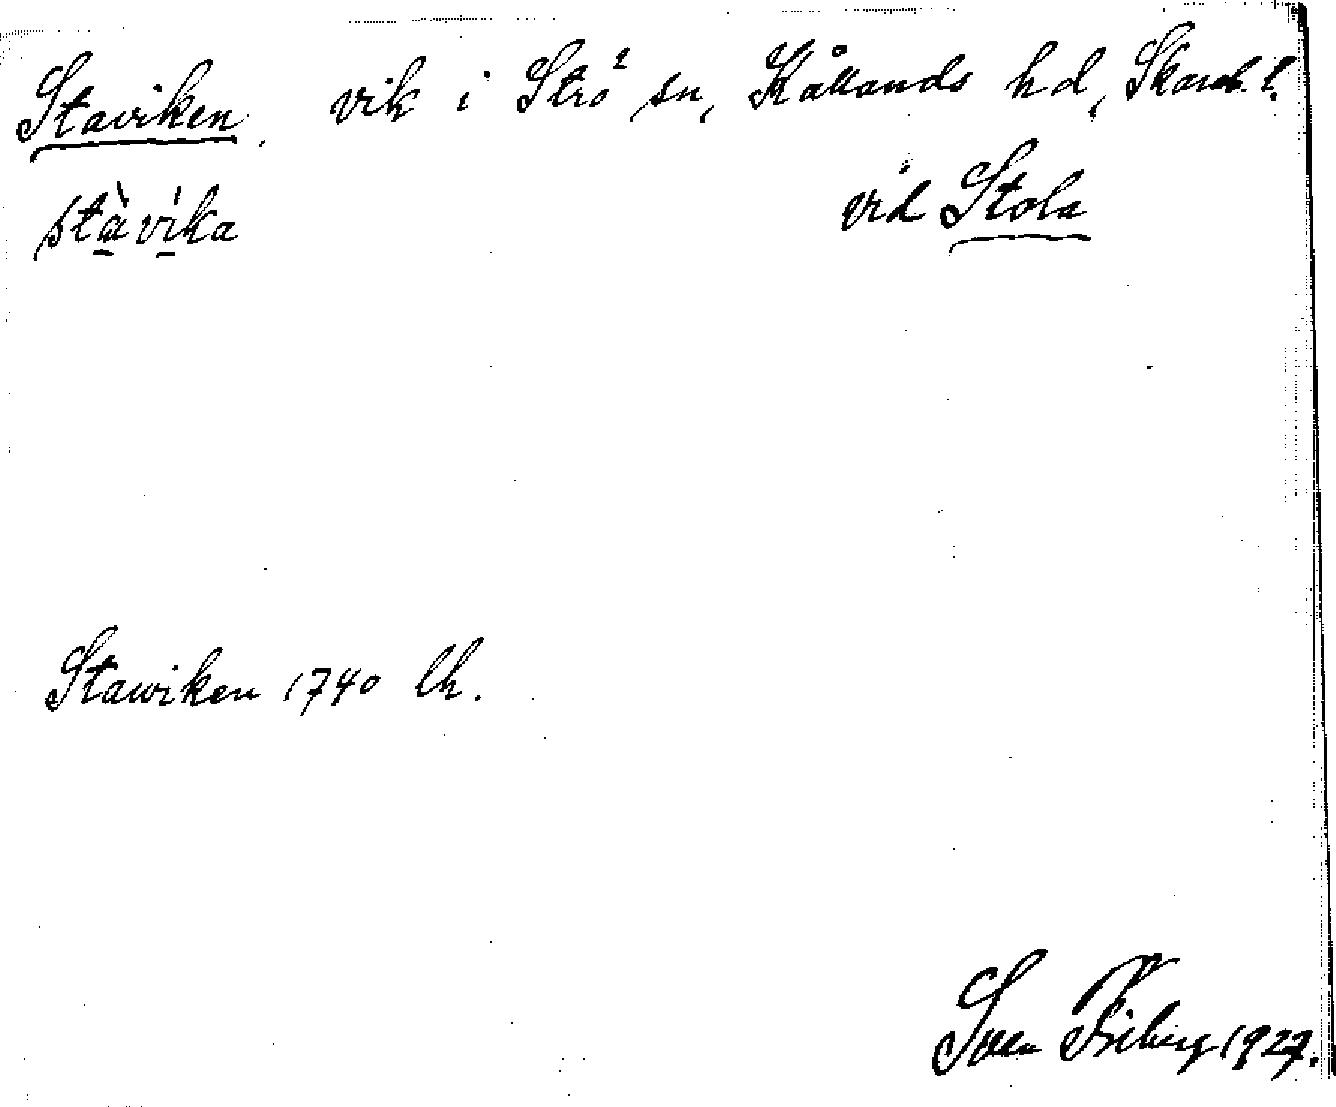 Staviken, vik i Strö sn, Kållands hd, Skarab. l.
stàvíka vid Stola
Stawiken 1740 lk.
Sven Friberg 1927.